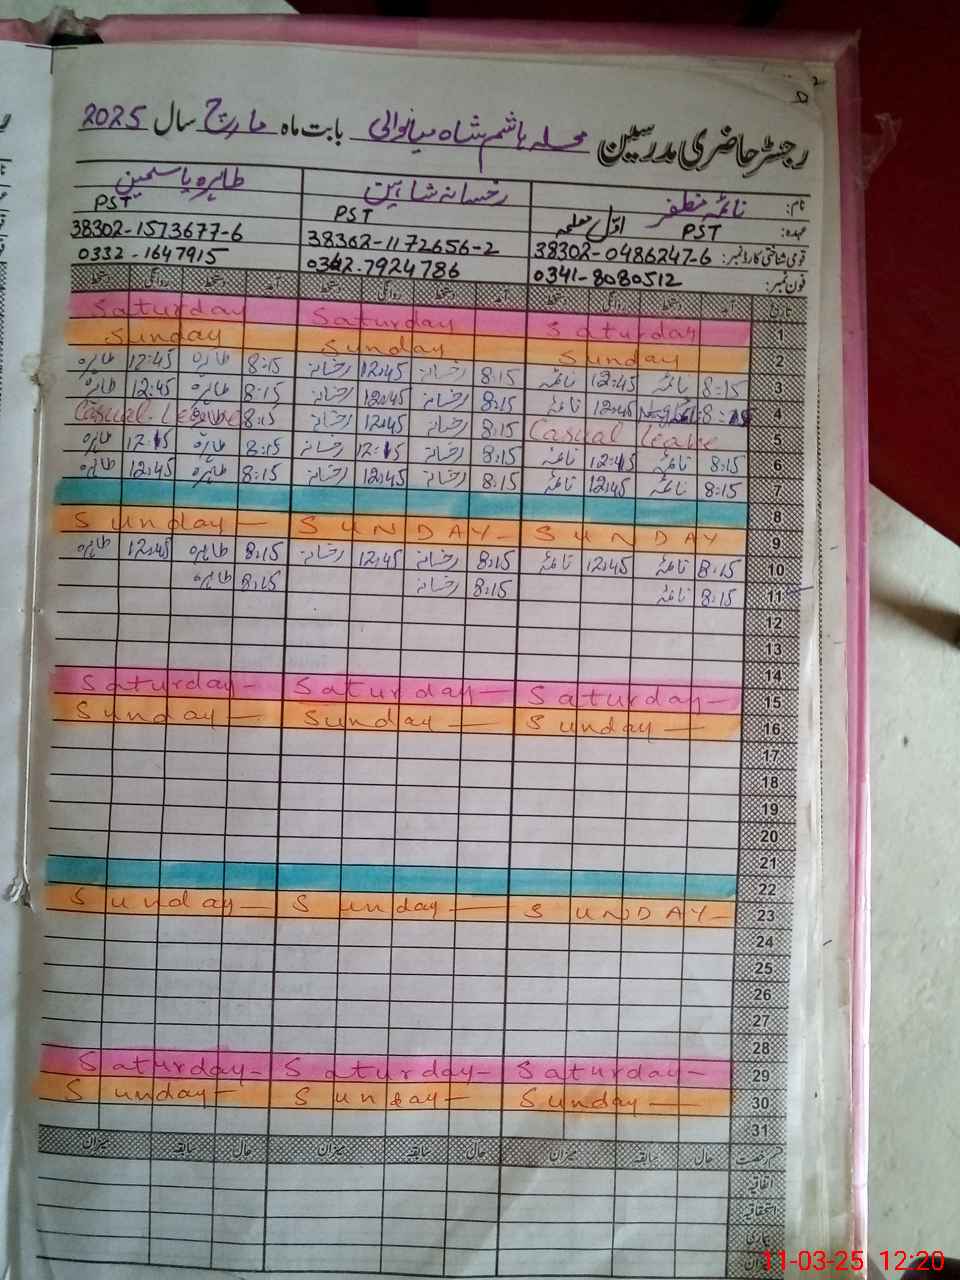 رجسٹر حاضری مدرسین محلہ ہاشم شاہ میانوالی بابت ماہ مارچ سال 2025
نام: نائمہ مظفر رخسانہ شاہین طاہرہ یاسمین
عہدہ: PST اول معلمہ PST PST
قومی شناختی کارڈ نمبر: 38302-0486247-6 38302-1172656-2 38302-1573677-6
فون نمبر: 0341-8080512 0342-7924786 0332-1647915
تاریخ آمد دستخط روانگی دستخط آمد دستخط روانگی دستخط آمد دستخط روانگی دستخط
1 Saturday Saturday Saturday
2 Sunday Sunday Sunday
3 8:15 نائمہ 12:45 نائمہ 8:15 رخسانہ 12:45 رخسانہ 8:15 طاہرہ 12:45 طاہرہ
4 8:15 12:45 نائمہ 8:15 رخسانہ 12:45 رخسانہ 8:15 طاہرہ 12:45 طاہرہ
5 Casual leave 8:15 رخسانہ 12:45 رخسانہ 8:15 Casual Leave
6 8:15 نائمہ 12:45 نائمہ 8:15 رخسانہ 12:15 رخسانہ 8:15 طاہرہ 12:15 طاہرہ
7 8:15 نائمہ 12:45 نائمہ 8:15 رخسانہ 12:45 رخسانہ 8:15 طاہرہ 12:45 طاہرہ
8
9 SUNDAY SUNDAY- Sunday-
10 8:15 نائمہ 12:45 نائمہ 8:15 رخسانہ 12:45 رخسانہ 8:15 طاہرہ 12:45 طاہرہ
11 8:15 نائمہ 8:15 رخسانہ 8:15 طاہرہ
12
13
14
15 Saturday- Saturday- Saturday-
16 Sunday- Sunday- Sunday-
17
18
19
20
21
22
23 SUNDAY- Sunday- Sunday-
24
25
26
27
28
29 Saturday- Saturday- Saturday-
30 Sunday- Sunday- Sunday-
31
قسم رخصت حال سابقہ میزان حال سابقہ میزان حال سابقہ میزان
اتفاقیہ
استحقاقیہ
بیماری
میزان
11-03-25 12:20